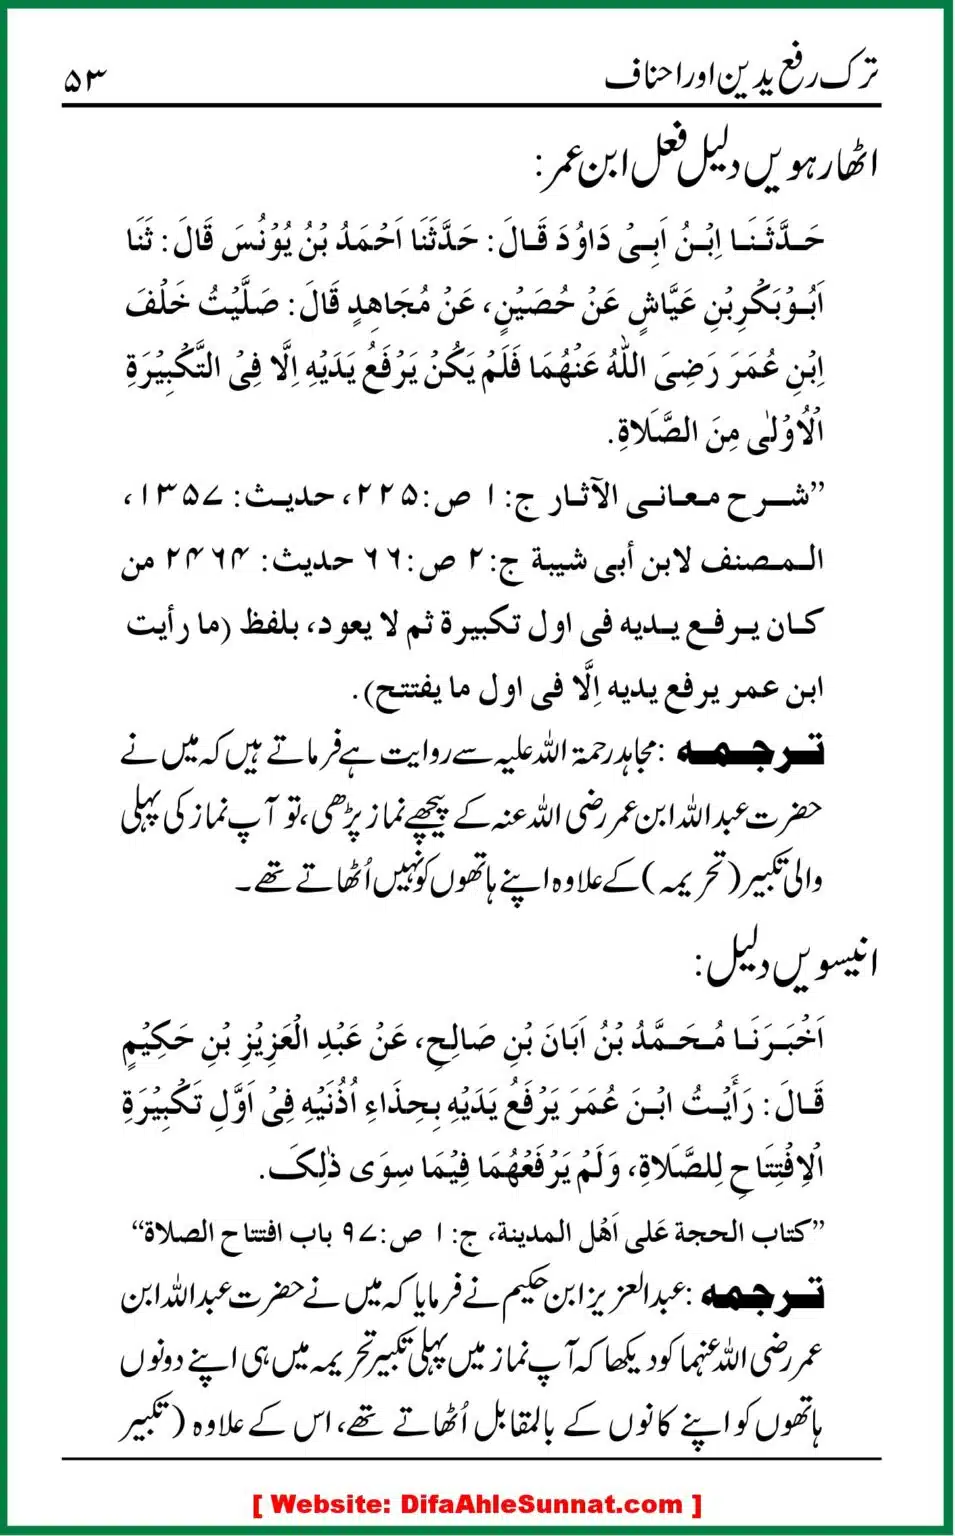 ترک رفع یدین اور احناف ۵۳
اٹھارہویں دلیل فعل ابن عمر:
حَدَّثَنَا اِبْنُ اَبِیْ دَاوُدَ قَالَ: حَدَّثَنَا اَحْمَدُ بْنُ یُوْنُسَ قَالَ: ثَنَا
اَبُوْبَکْرِبْنِ عَیَّاشٍ عَنْ حُصَیْنٍ، عَنْ مُجَاهِدٍ قَالَ: صَلَّیْتُ خَلْفَ
اِبْنِ عُمَرَ رَضِیَ اللّٰهُ عَنْهُمَا فَلَمْ یَکُنْ یَرْفَعُ یَدَیْهِ اِلَّا فِیْ التَّکْبِیْرَةِ
الْاُوْلٰی مِنَ الصَّلَاةِ.
”شرح معانی الآثار ج: ۱ ص: ۲۲۵، حدیث: ۱۳۵۷،
المصنف لابن أبی شیبة ج: ۲ ص: ۶۶ حدیث: ۲۴۶۴ من
کان یرفع یدیه فی اول تکبیرة ثم لا یعود، بلفظ (ما رأیت
ابن عمر یرفع یدیه اِلَّا فی اول ما یفتتح).
ترجمہ: مجاہد رحمۃ اللہ علیہ سے روایت ہے فرماتے ہیں کہ میں نے
حضرت عبد اللہ ابن عمر رضی اللہ عنہ کے پیچھے نماز پڑھی، تو آپ نماز کی پہلی
والی تکبیر (تحریمہ) کے علاوہ اپنے ہاتھوں کو نہیں اُٹھاتے تھے۔
انیسویں دلیل:
اَخْبَرَنَا مُحَمَّدُ بْنُ اَبَانَ بْنِ صَالِحٍ، عَنْ عَبْدِ الْعَزِیْزِ بْنِ حَکِیْمٍ
قَالَ: رَأَیْتُ ابْنَ عُمَرَ یَرْفَعُ یَدَیْهِ بِحِذَاءِ اُذُنَیْهِ فِیْ اَوَّلِ تَکْبِیْرَةِ
الْاِفْتِتَاحِ لِلصَّلَاةِ، وَلَمْ یَرْفَعْهُمَا فِیْمَا سِوَی ذٰلِکَ.
”کتاب الحجة عَلی اَهْل المدینة، ج: ۱ ص: ۹۷ باب افتتاح الصلاة“
ترجمہ: عبدالعزیز ابن حکیم نے فرمایا کہ میں نے حضرت عبد اللہ ابن
عمر رضی اللہ عنہما کو دیکھا کہ آپ نماز میں پہلی تکبیر تحریمہ میں ہی اپنے دونوں
ہاتھوں کو اپنے کانوں کے بالمقابل اُٹھاتے تھے، اس کے علاوہ (تکبیر
[ Website: DifaAhleSunnat.com ]